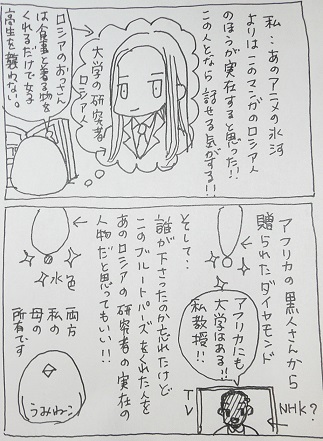 私：あのアニメの氷河
よりはこのマンガのロシア人
のほうが実在すると思った!!
この人となら話せる気がする!!
大学の研究者
ロシア人
ロシアのおっさん
は食事と着る物を
くれるだけで女子
高生を襲わない。
アフリカの黒人さんから
贈られたダイヤモンド
アフリカにも
大学はある!!
私教授!!
NHK?
TV
そして…
誰が下さったのか忘れたけど
このブルートパーズをくれた人を
あのロシアの研究者の実在の
人物だと思ってもいい!!
水色
両方
私の
母の
所有です
うみねこ